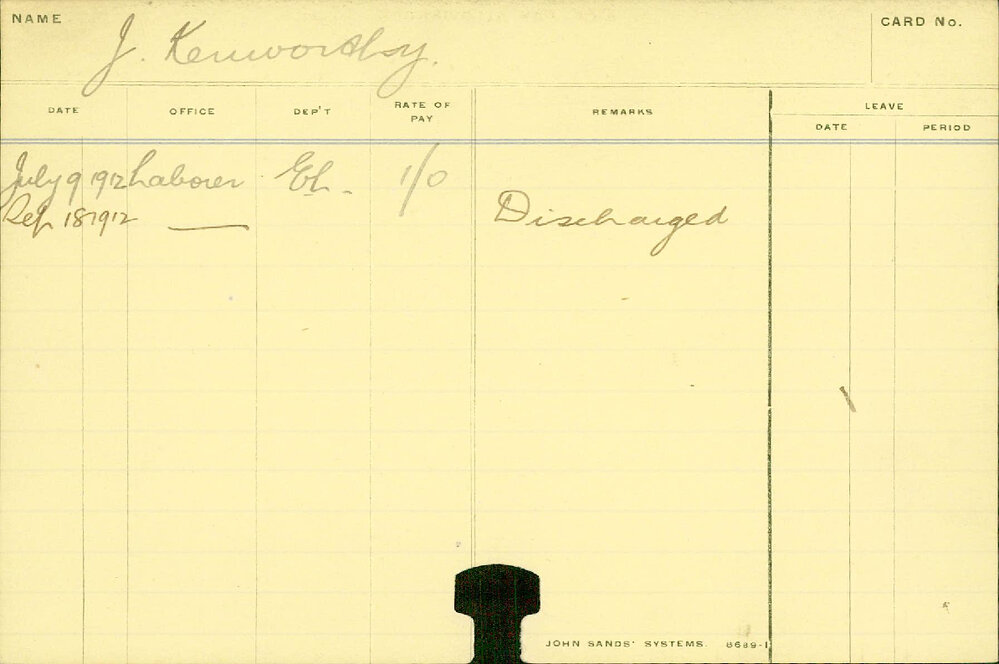 NAME J. Kenworthy. CARD No.
DATE OFFICE DEP'T RATE OF PAY REMARKS LEAVE
DATE PERIOD
July 9 1912 Laborer Eh. 1/0
Sep 18 1912 — Discharged
JOHN SANDS' SYSTEMS. 8689-1